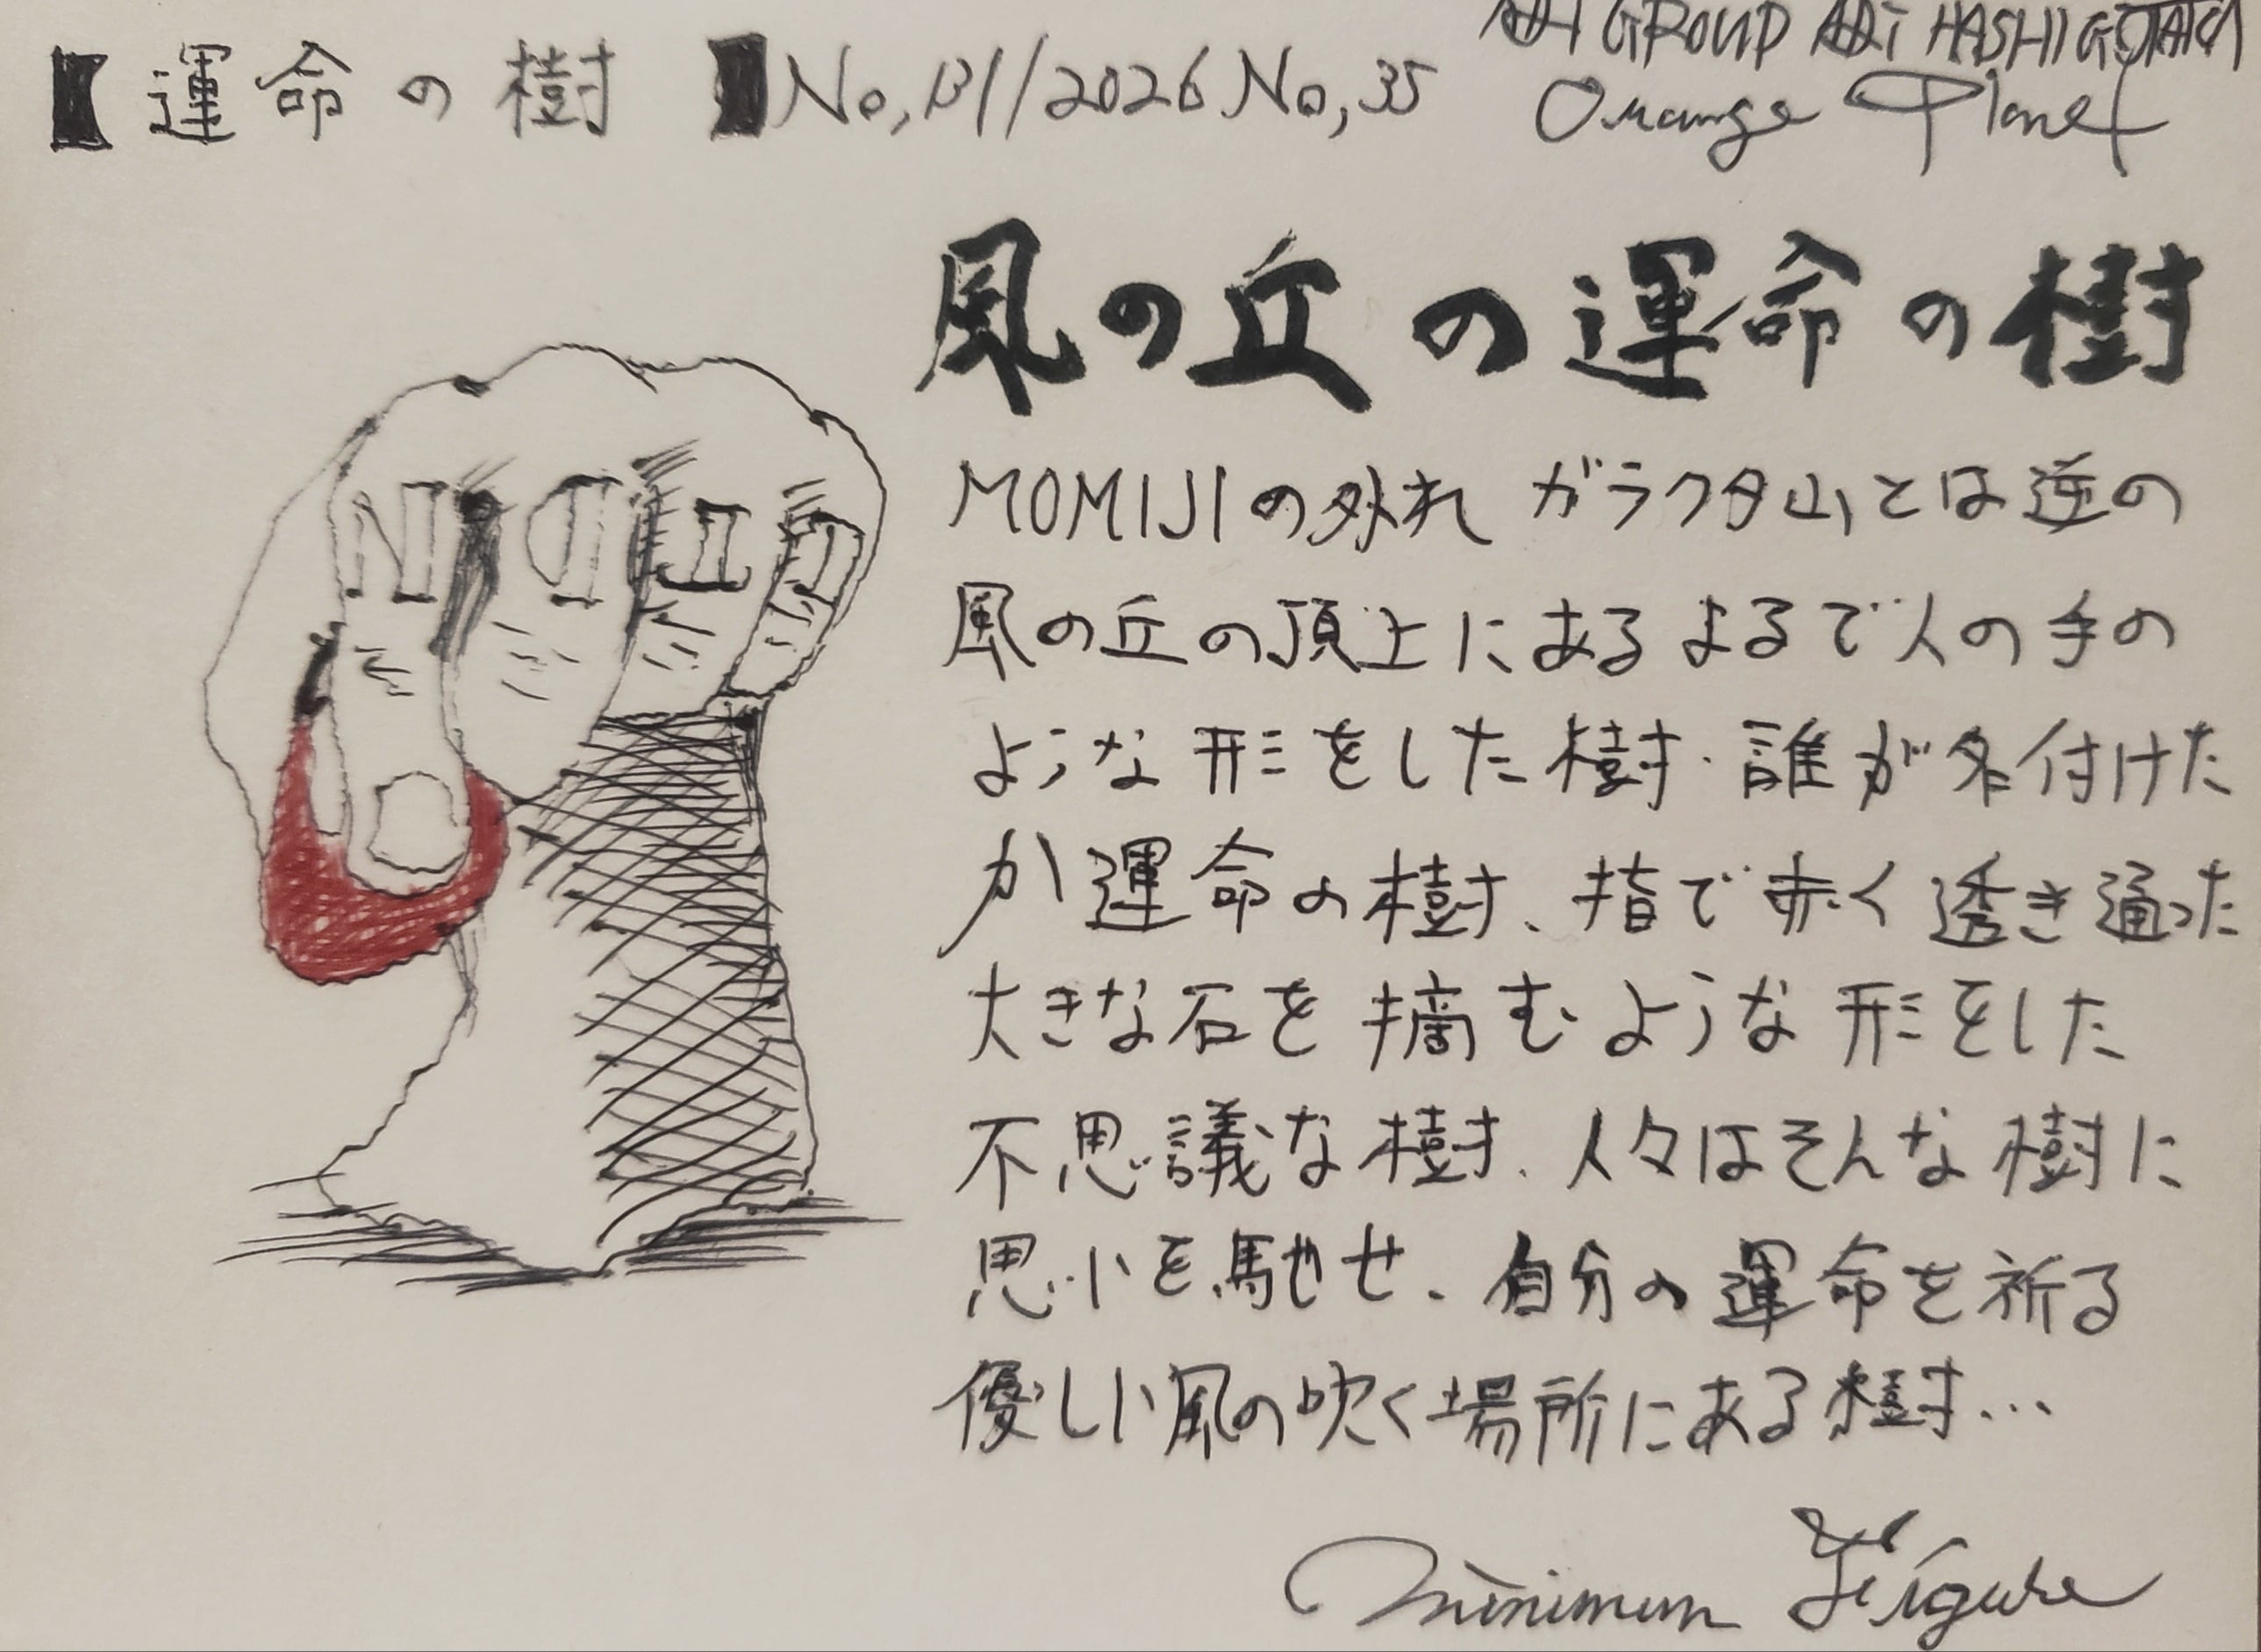 【運命の樹】No,131/2026 No,35
Orange Planet
風の丘の運命の樹
MOMIJIの外れ ガラクタ山とは逆の
風の丘の頂上にあるまるで人の手の
ような形をした樹.誰が名付けた
か運命の樹、指で赤く透き通った
大きな石を摘むような形をした
不思議な樹、人々はそんな樹に
思いを馳せ、自分の運命を祈る
優しい風の吹く場所にある樹...
Minimum Figure